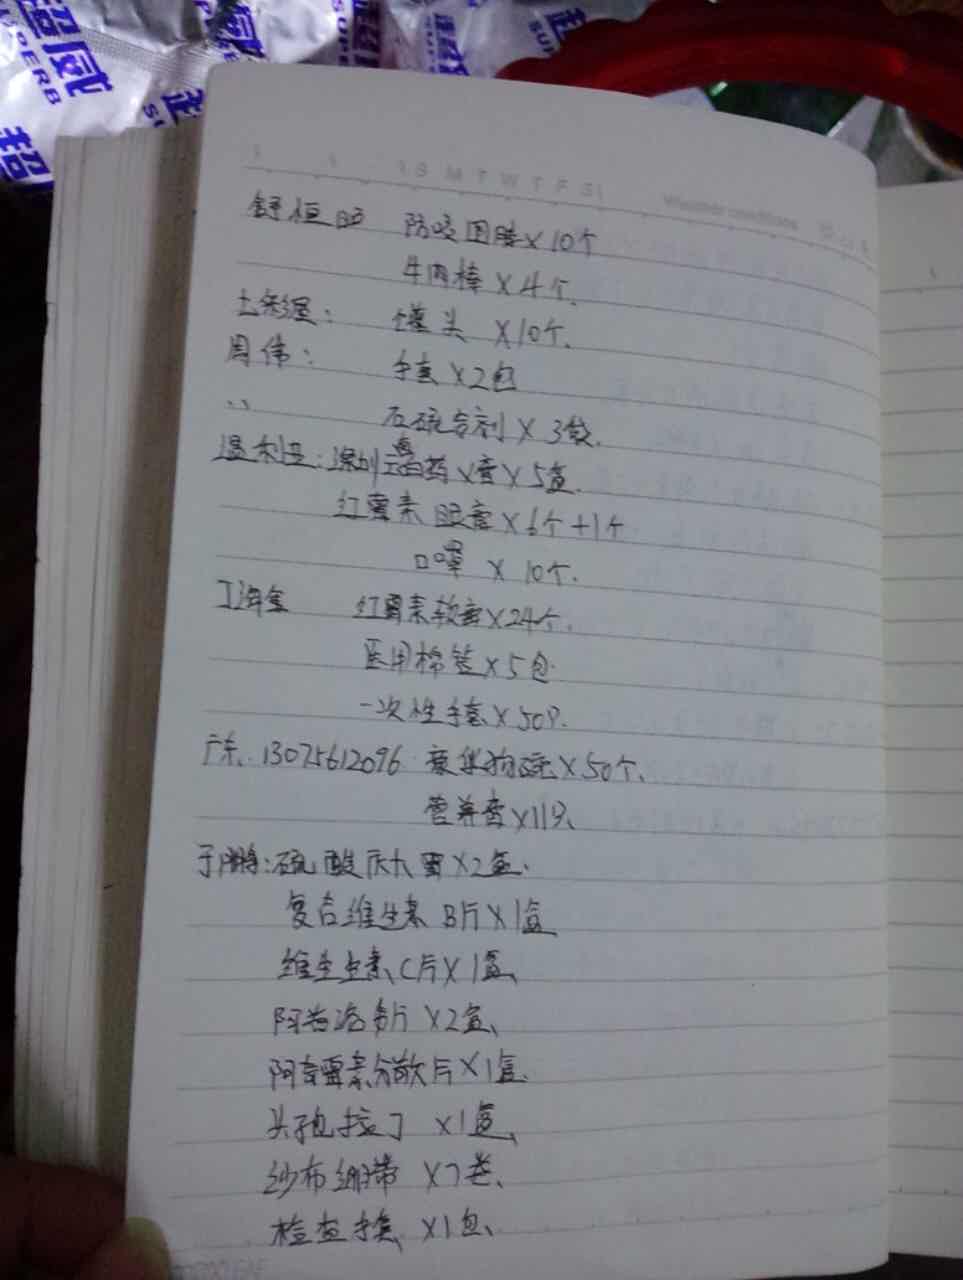 超威
SUPERB
超
S M T W T F S
舒恒 防咬围脖×10个
牛肉棒×4个.
罐头 ×10个.
周伟: 手套×2包
石硫合剂×3袋.
温利亚:深圳 白药 膏×5盒.
红霉素眼膏×6个+1个
口罩 ×10个.
江海金 红霉素软膏×24个.
医用棉签×5包
一次性手套×50只.
广东. 13075612096 ×50个、
营养膏×11只、
于鹏:硫酸庆大霉×2盒.
复合维生素B片×1盒
维生生素C片×1盒、
阿昔洛韦片 ×2盒、
阿奇霉素分散片×1盒.
头孢拉丁 ×1盒、
纱布绷带 ×7卷、
检查手套 ×1包、